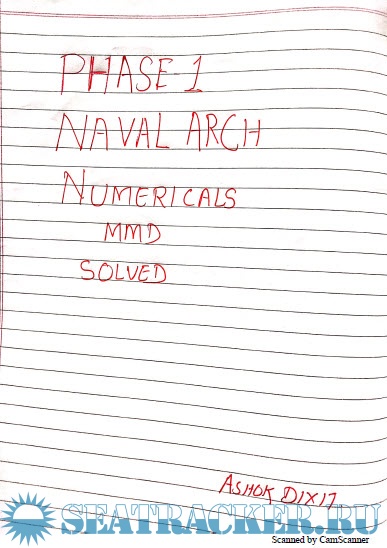 PHASE 1
NAVAL ARCH
NUMERICALS
MMD
SOLVED
ASHOK DIXIT
SEATRACKER.RU
Scanned by CamScanner